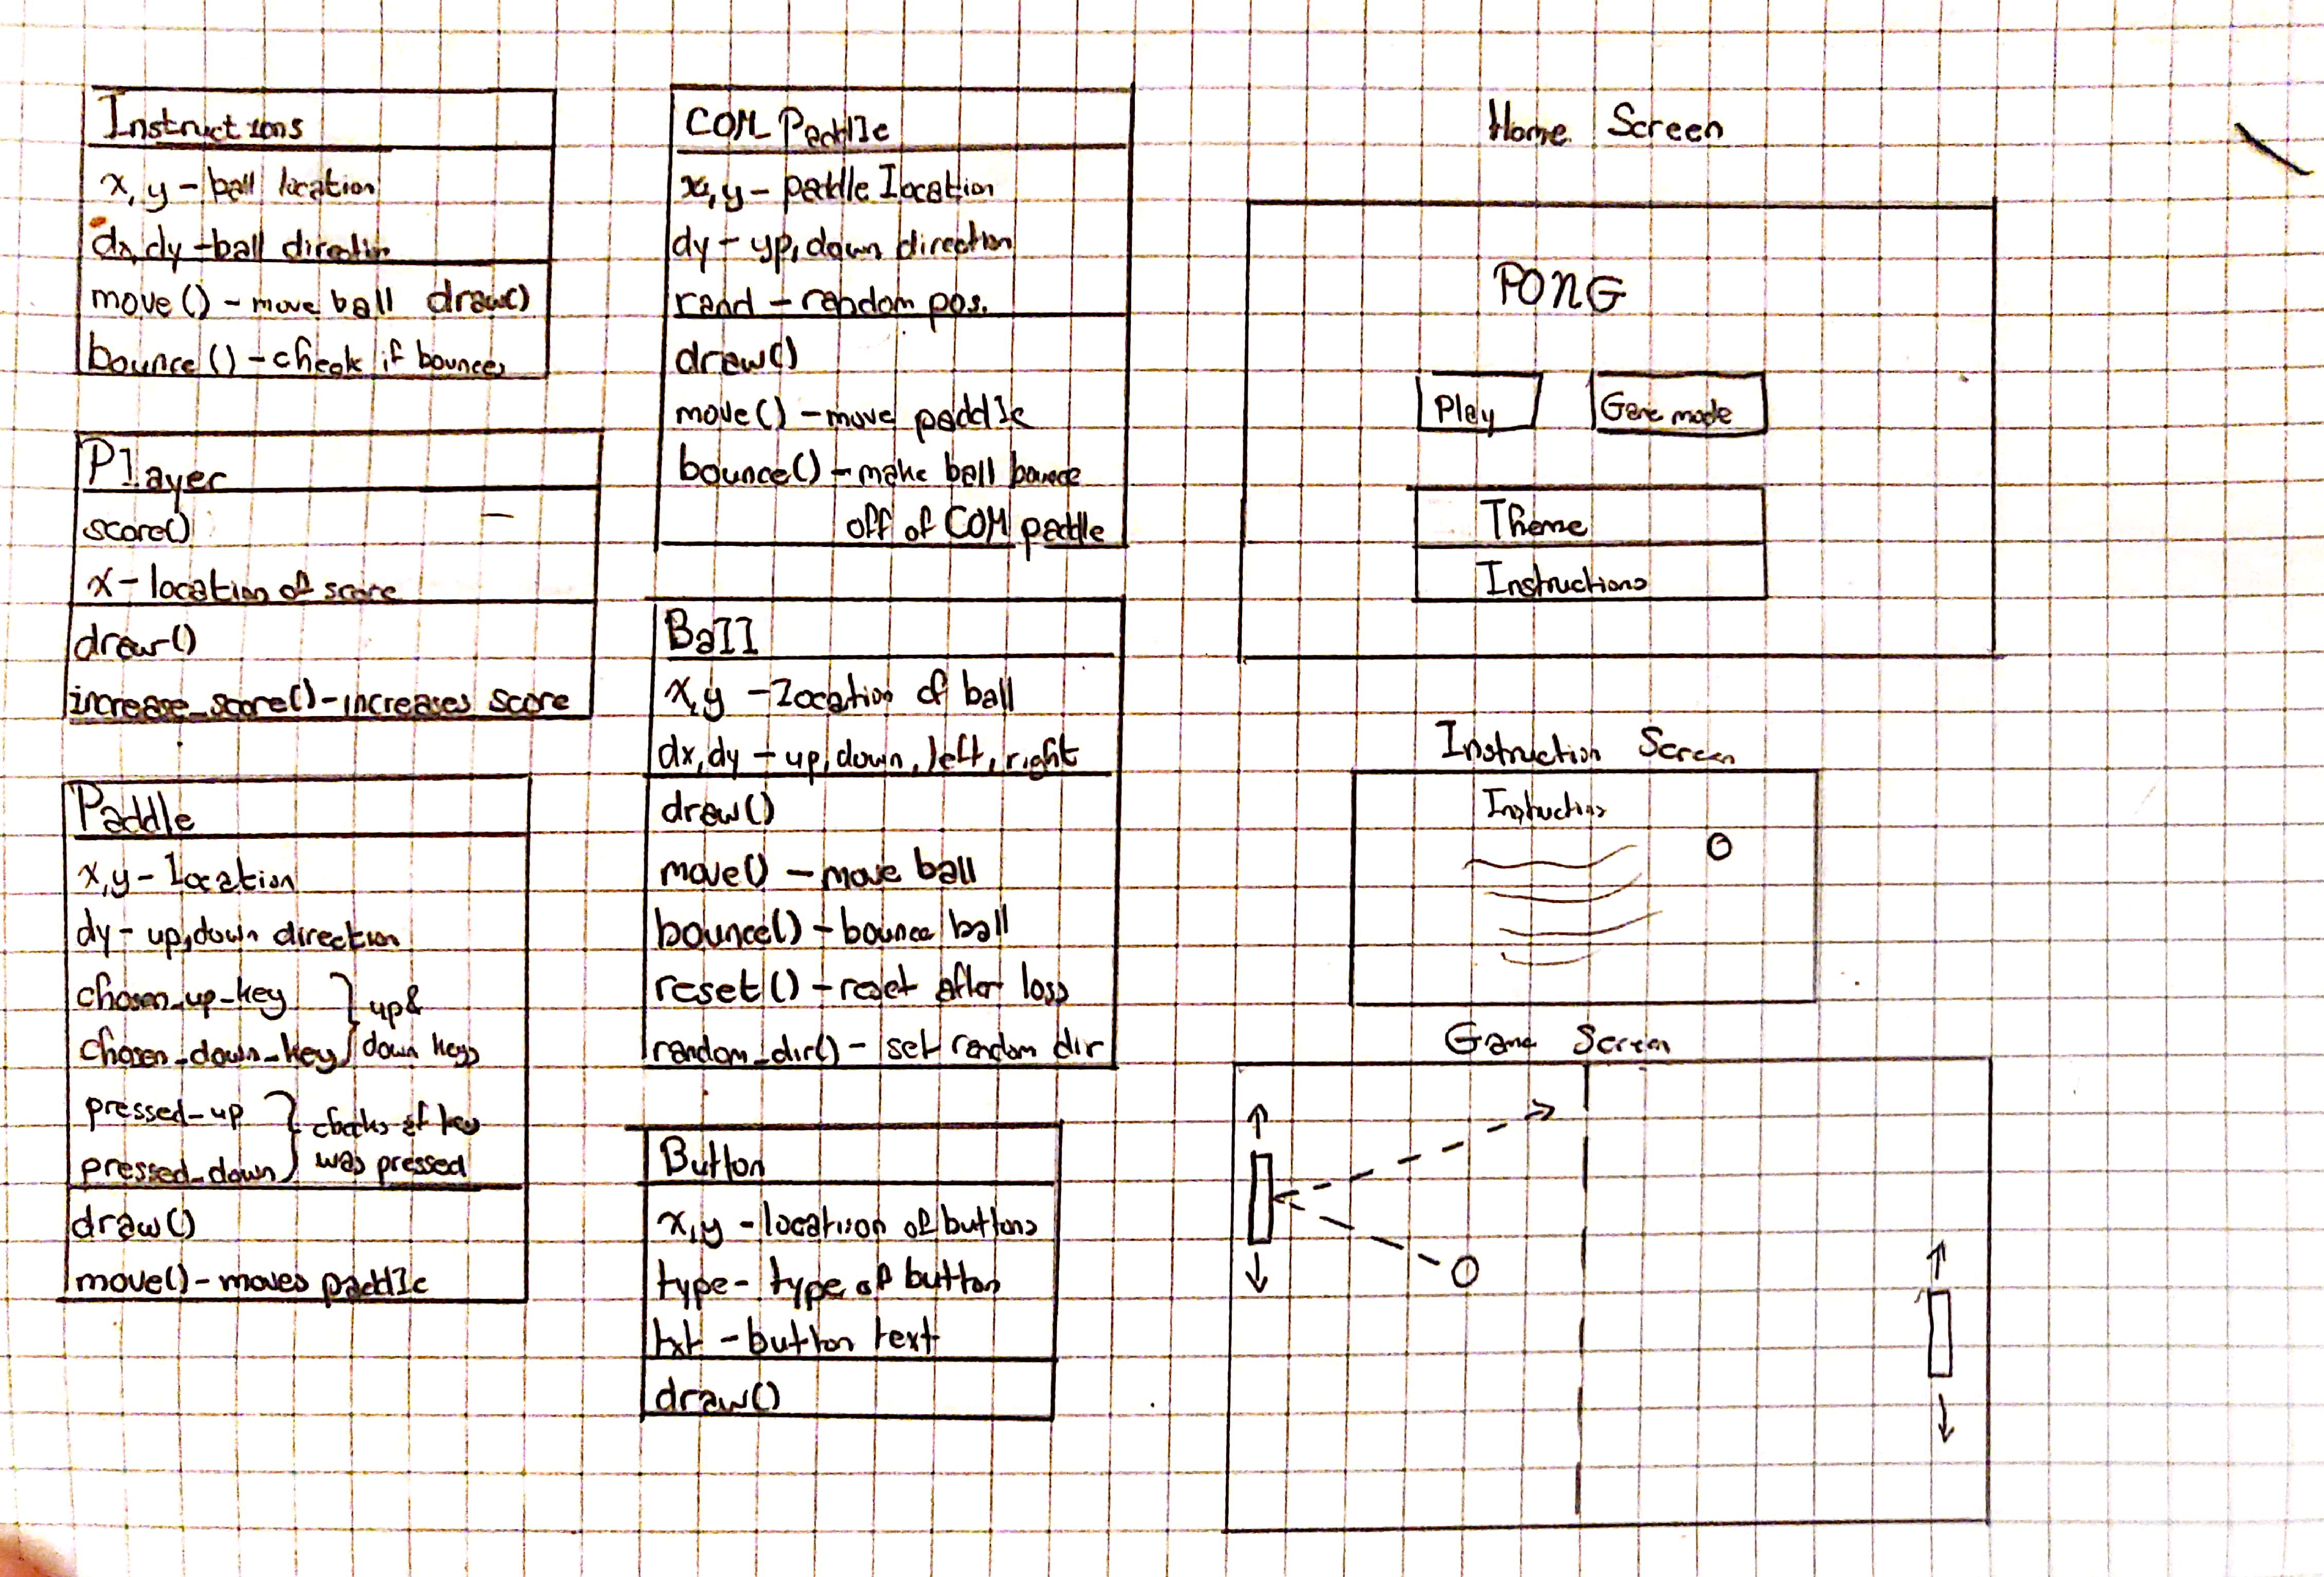 Instructions
x, y - ball location
dx, dy - ball direction
move() - move ball draw()
bounce() - check if bounces
Player
score()
x - location of score
draw()
increase_score() - increases score
Paddle
x, y - location
dy - up, down direction
chosen_up_key
chosen_down_key
up &
down keys
pressed_up
pressed_down
checks if key
was pressed
draw()
move() - moves paddle
COM Paddle
x, y - paddle location
dy - up, down direction
rand - random pos.
draw()
move() - move paddle
bounce() - make ball bounce
off of COM paddle
Ball
x, y - location of ball
dx, dy - up, down, left, right
draw()
move() - move ball
bounce() - bounce ball
reset() - reset after loss
random_dir() - set random dir
Button
x, y - location of buttons
type - type of button
txt - button text
draw()
Home Screen
PONG
Play Game mode
Theme
Instructions
Instruction Screen
Instructions
Game Screen